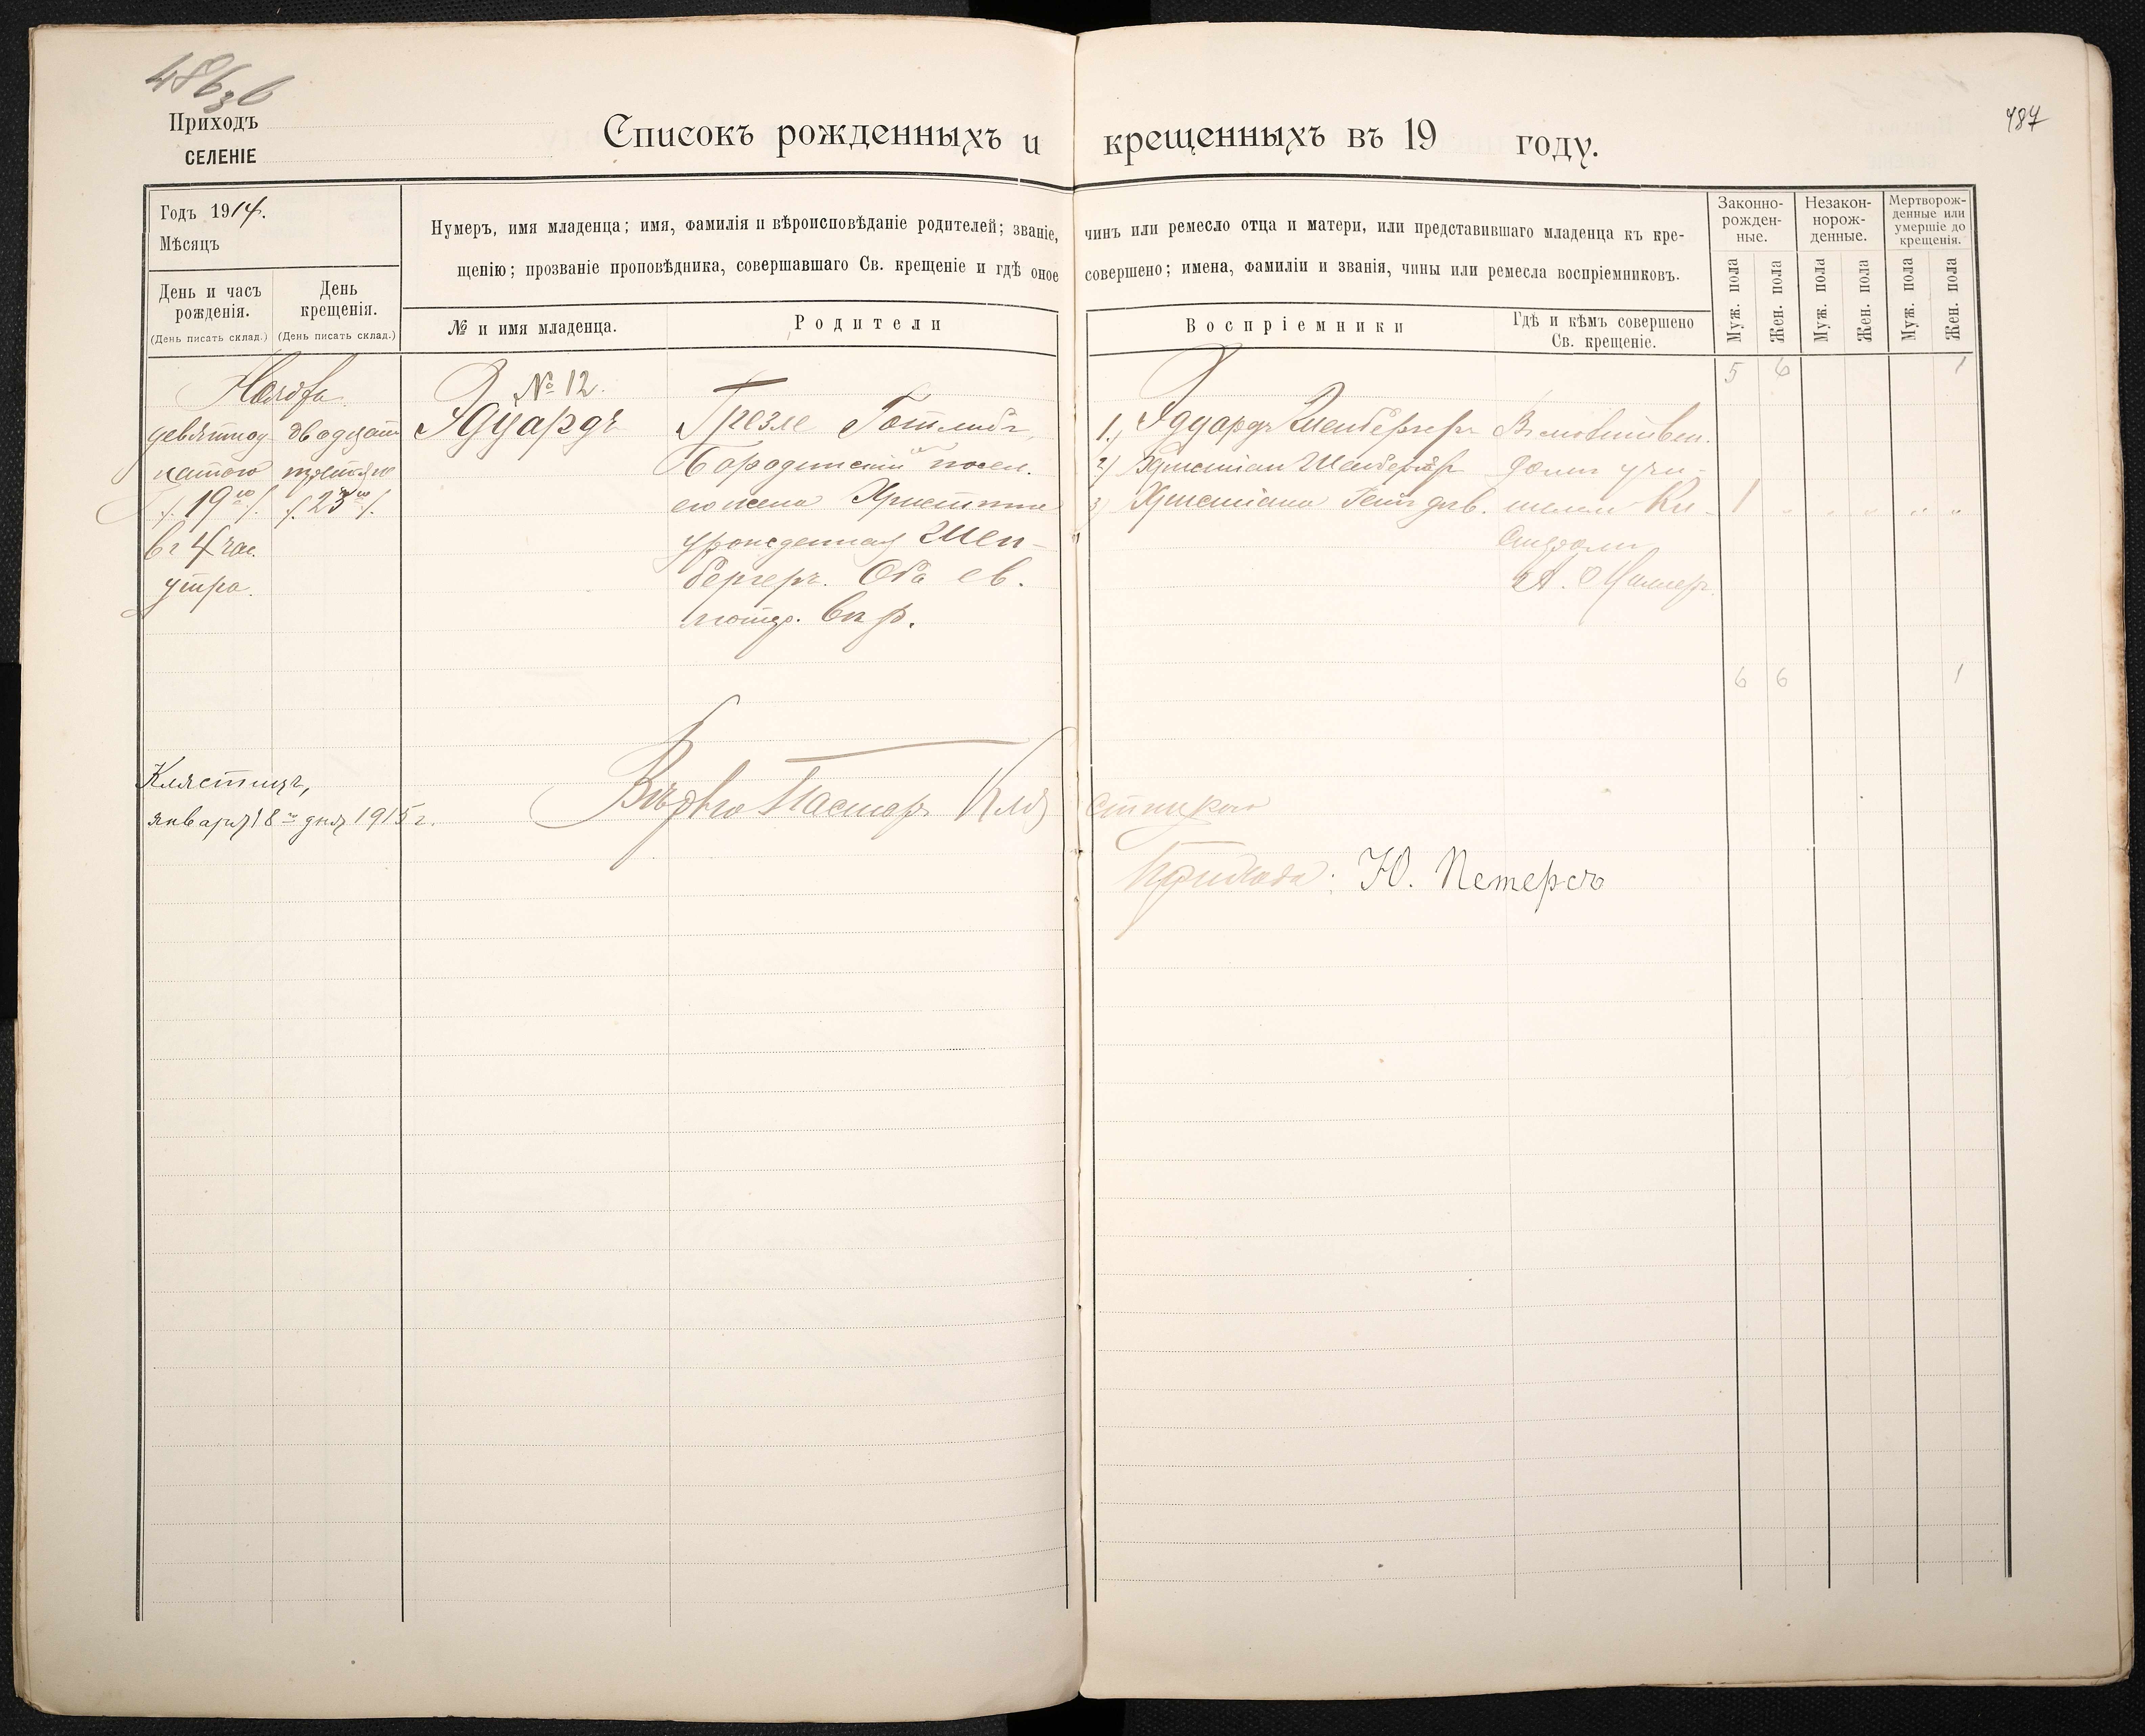 486
Приходъ
СЕЛЕНІЕ
Списокъ рожденныхъ и крещенныхъ въ 19 году.
487
Годъ 1914.
Мѣсяцъ
День и часъ рожденія.
(День писать склад.)
День крещенія.
(День писать склад.)
Нумеръ, имя младенца; имя, фамилія и вѣроисповѣданіе родителей; званіе, чинъ или ремесло отца и матери, или представившаго младенца къ кре-
щенію; прозваніе проповѣдника, совершавшаго Св. крещеніе и гдѣ оное совершено; имена, фамиліи и званія, чины или ремесла воспріемниковъ.
№ и имя младенца.
Родители
Воспріемники
Гдѣ и кѣмъ совершено
Св. крещеніе.
Законно-
рожден-
ные.
Незакон-
норож-
денные.
Мертворож-
денные или
умершіе до
крещенія.
Муж. пола
Жен. пола
Муж. пола
Жен. пола
Муж. пола
Жен. пола
Ноября
девятнад
цатаго
/. 19го /.
въ 4 час.
утра.
двадцать
третьяго
/. 23го /.
№ 12.
Эдуардъ
Грезле Готлибъ,
Бородинскій посел.
его жена Христина
урожденная Шен-
бергеръ. Оба ев.
лютер. вѣр.
1.) Эдуардъ Шенбергеръ
2) Христіан Шенбергеръ
3) Христіана дѣв.
Въ молитвен.
домѣ учи-
телемъ
5 6 1
1 " " " " "
6 6 1
Клястицъ,
января 18го дня 1915 г.
Вѣрно Пасторъ Клястицкаго
Прихода: Ю. Петерсъ